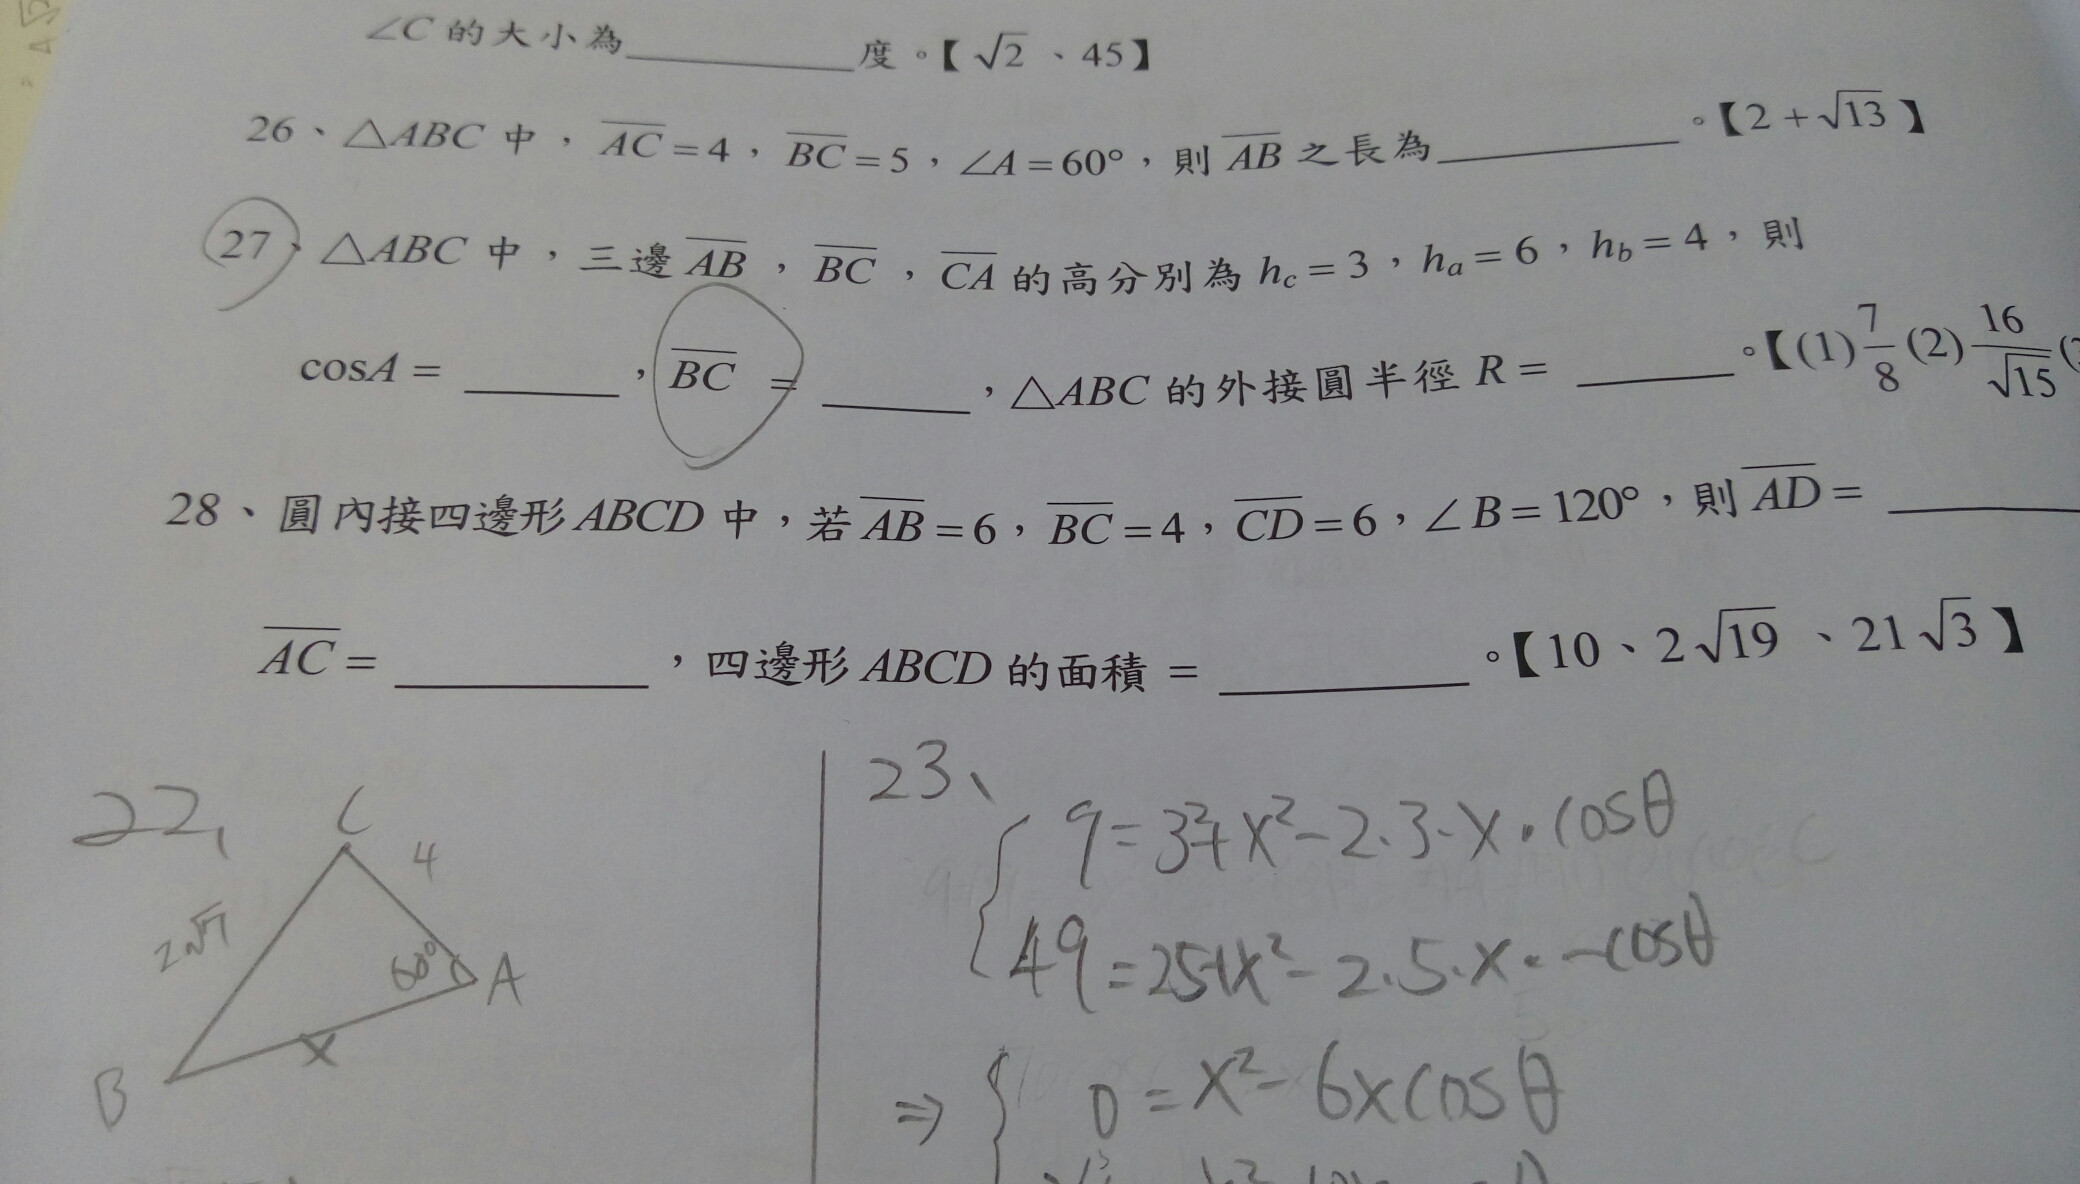 ∠C 的大小為______度。【√2、45】
26、△ABC 中，AC=4，BC=5，∠A=60°，則 AB 之長為______。【2+√13】
27、△ABC 中，三邊 AB，BC，CA 的高分別為 h_c=3，h_a=6，h_b=4，則
cosA=______，BC=______，△ABC 的外接圓半徑 R=______。【(1)7/8(2)16/√15(
28、圓內接四邊形ABCD 中，若 AB=6，BC=4，CD=6，∠B=120°，則 AD=______
AC=______，四邊形 ABCD 的面積=______。【10、2√19、21√3】
22、
C
4
2√7
60°
A
x
B
23、
9=3²+x²-2·3·x·cosθ
49=25+x²-2·5·x·-cosθ
⇒ 0=x²-6xcosθ